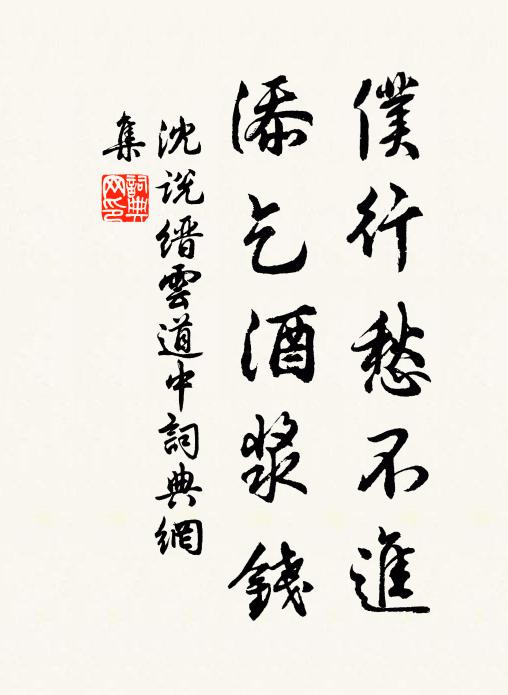 僕行愁不進
添乞酒漿錢
沈說縉雲道中詞典網
集
詞典
网印